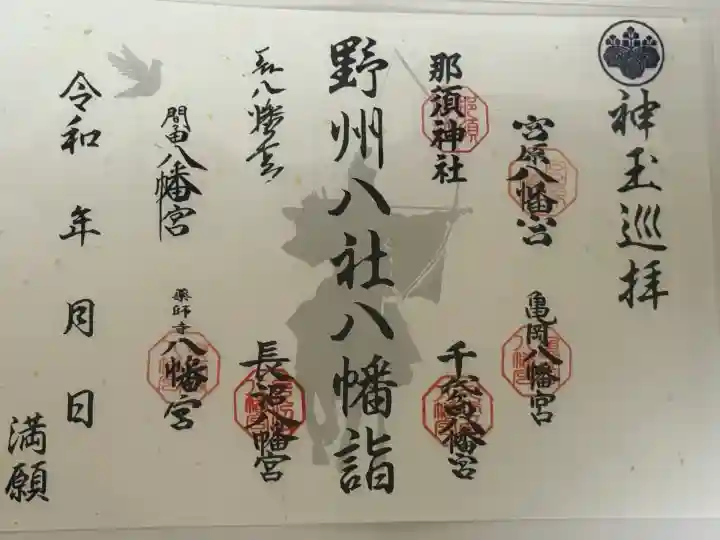 神玉巡拝
宮原八幡宮
亀岡八幡宮
那須神社
千代田八幡宮
野州八社八幡詣
長沼八幡宮
間々田八幡宮
薬師寺八幡宮
令和 年 月 日
満願